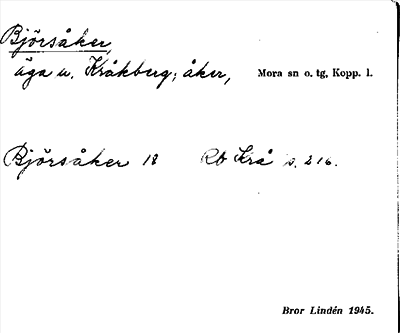 Björsåker,
äga u. Kråkberg; åker, Mora sn o. tg, Kopp. l.
Björsåker 18 Rb Krå s. 216.
Bror Lindén 1945.